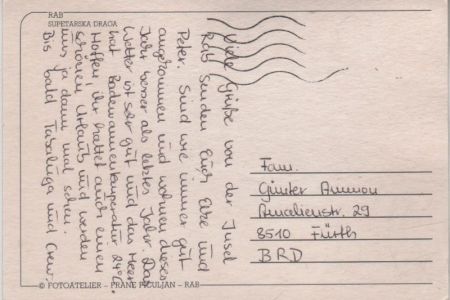 RAB
SUPETARSKA DRAGA
Viele Grüße von der Insel
Rab senden Euch Elke und
Peter. Sind wie immer gut
angekommen und wohnen dieses
Jahr besser als letztes Jahr. Das
Wetter ist sehr gut und das Meer
hat Badewannentemperatur 24°C.
Hoffen, ihr hattet auch einen
schönen Urlaub und werden
uns ja dann mal sehen.
Bis bald Tabaluga und Crew.
Fam.
Günter Ammon
Amalienstr. 29
8510 Fürth
BRD
© FOTOATELIER - FRANE PICULJAN - RAB